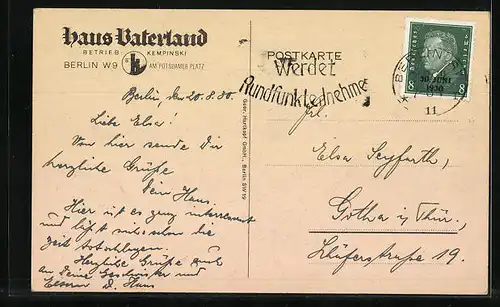 Haus Vaterland
BETRIEB KEMPINSKI
BERLIN W9 AM POTSDAMER PLATZ
Berlin, den 20.8.30.
Liebe Elsa!
Von hier sende Dir
herzliche Grüße
Dein Hans
Hier ist es ganz interessant
und läßt sich schon die
Zeit totschlagen.
Herzliche Grüße auch
an Deine Geschwister und
Eltern D. Hans
POSTKARTE
Werdet
Rundfunkteilnehmer
BERLIN
30. JUNI
1930
8 8
11
Frl.
Elsa Seyfarth,
Gotha i/Thür.
straße 19.